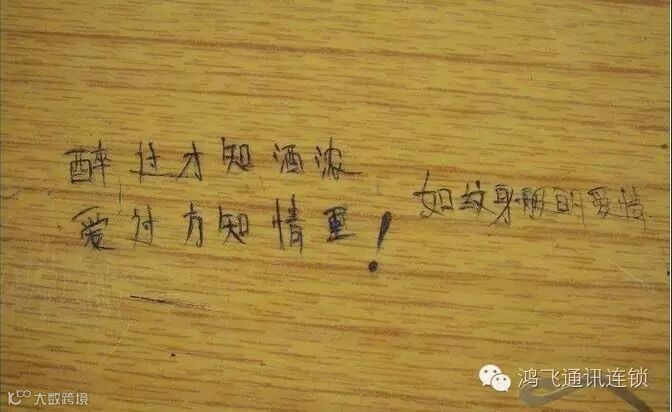 醉过才知酒浓
爱过方知情重！
如纹身般的爱情
鸿飞通讯连锁
大数跨境